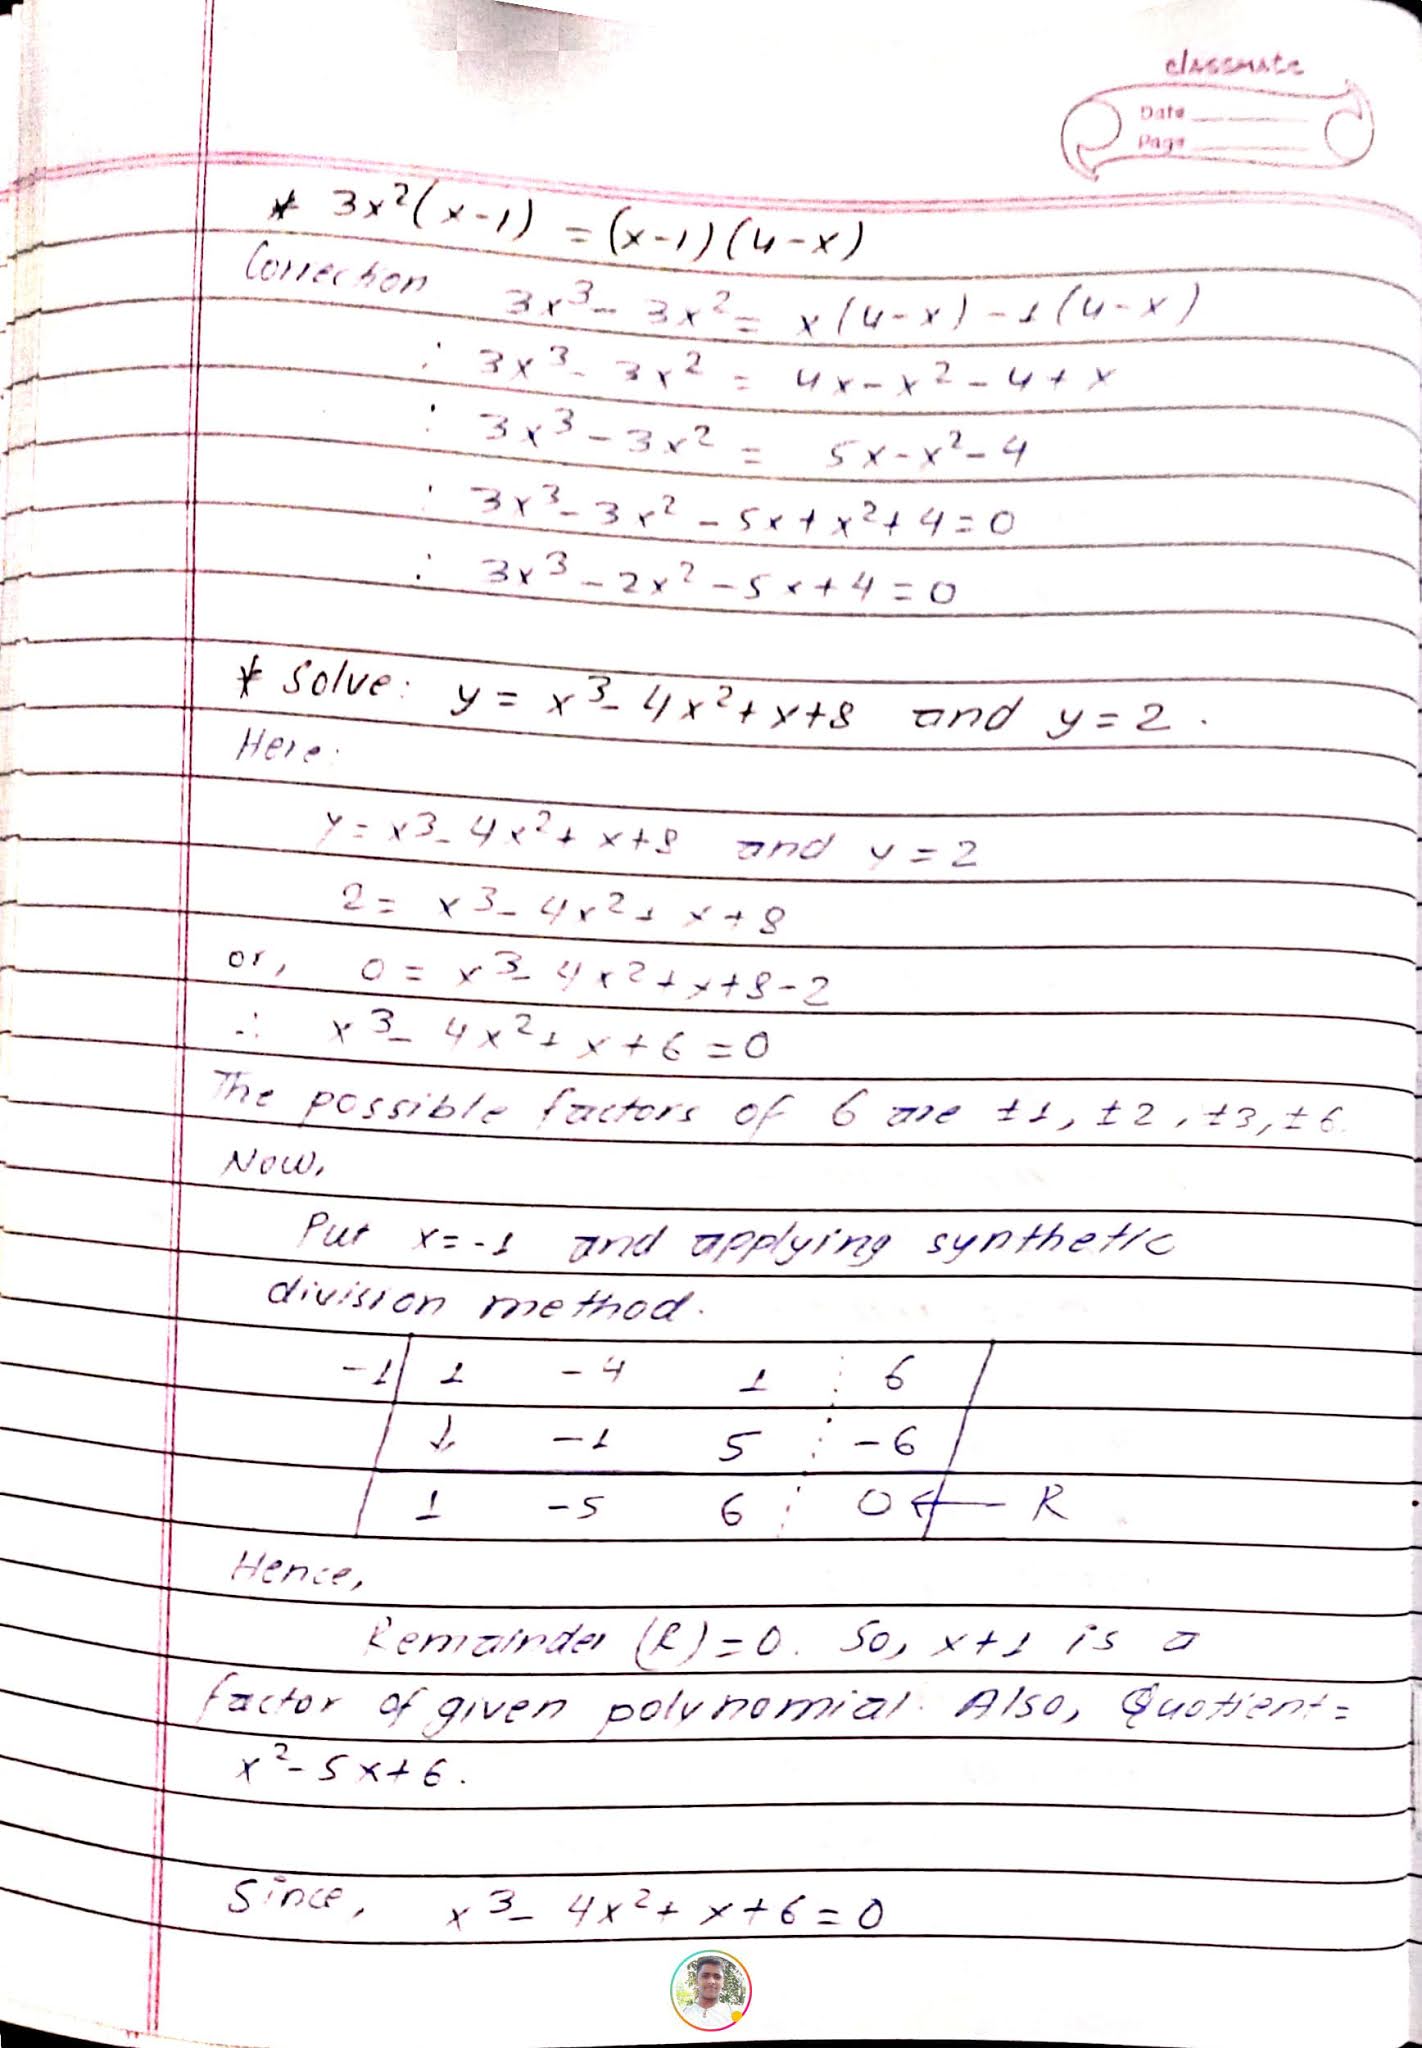 classmate
Date
Page
* 3x²(x-1) = (x-1)(4-x)
Correction 3x³- 3x² = x(4-x) -1(4-x)
: 3x³- 3x² = 4x-x²-4+x
: 3x³-3x² = 5x-x²-4
: 3x³-3x²-5x+x²+4=0
: 3x³-2x²-5x+4=0
* Solve: y = x³-4x²+x+8 and y=2.
Here:
y=x³-4x²+x+8 and y=2
2= x³-4x²+x+8
or, 0= x³-4x²+x+8-2
∴ x³-4x²+x+6=0
The possible factors of 6 are ±1, ±2, ±3, ±6.
Now,
Put x=-1 and applying synthetic
division method.
-1 1 -4 1 6
↓ -1 5 -6
1 -5 6 0 ← R
Hence,
Remainder (R)=0. So, x+1 is a
factor of given polynomial. Also, Quotient=
x²-5x+6.
Since, x³-4x²+x+6=0